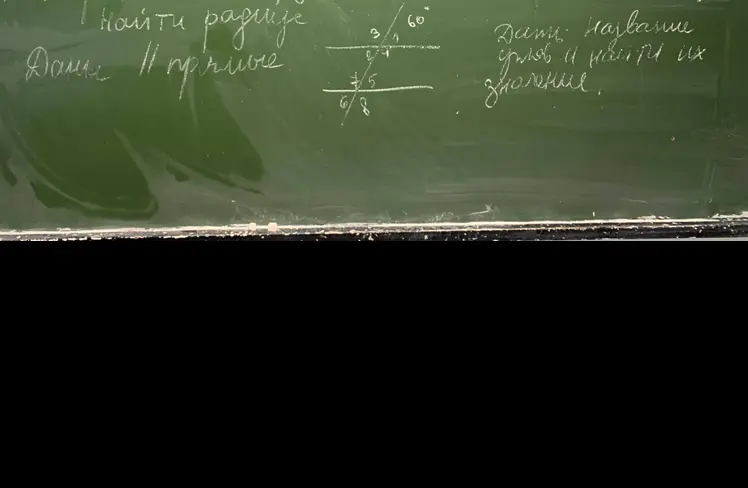 Найти радиус
Даны || прямые
3 1 60°
2 4
7 5
6 8
Дать название
углов и найти их
значение.